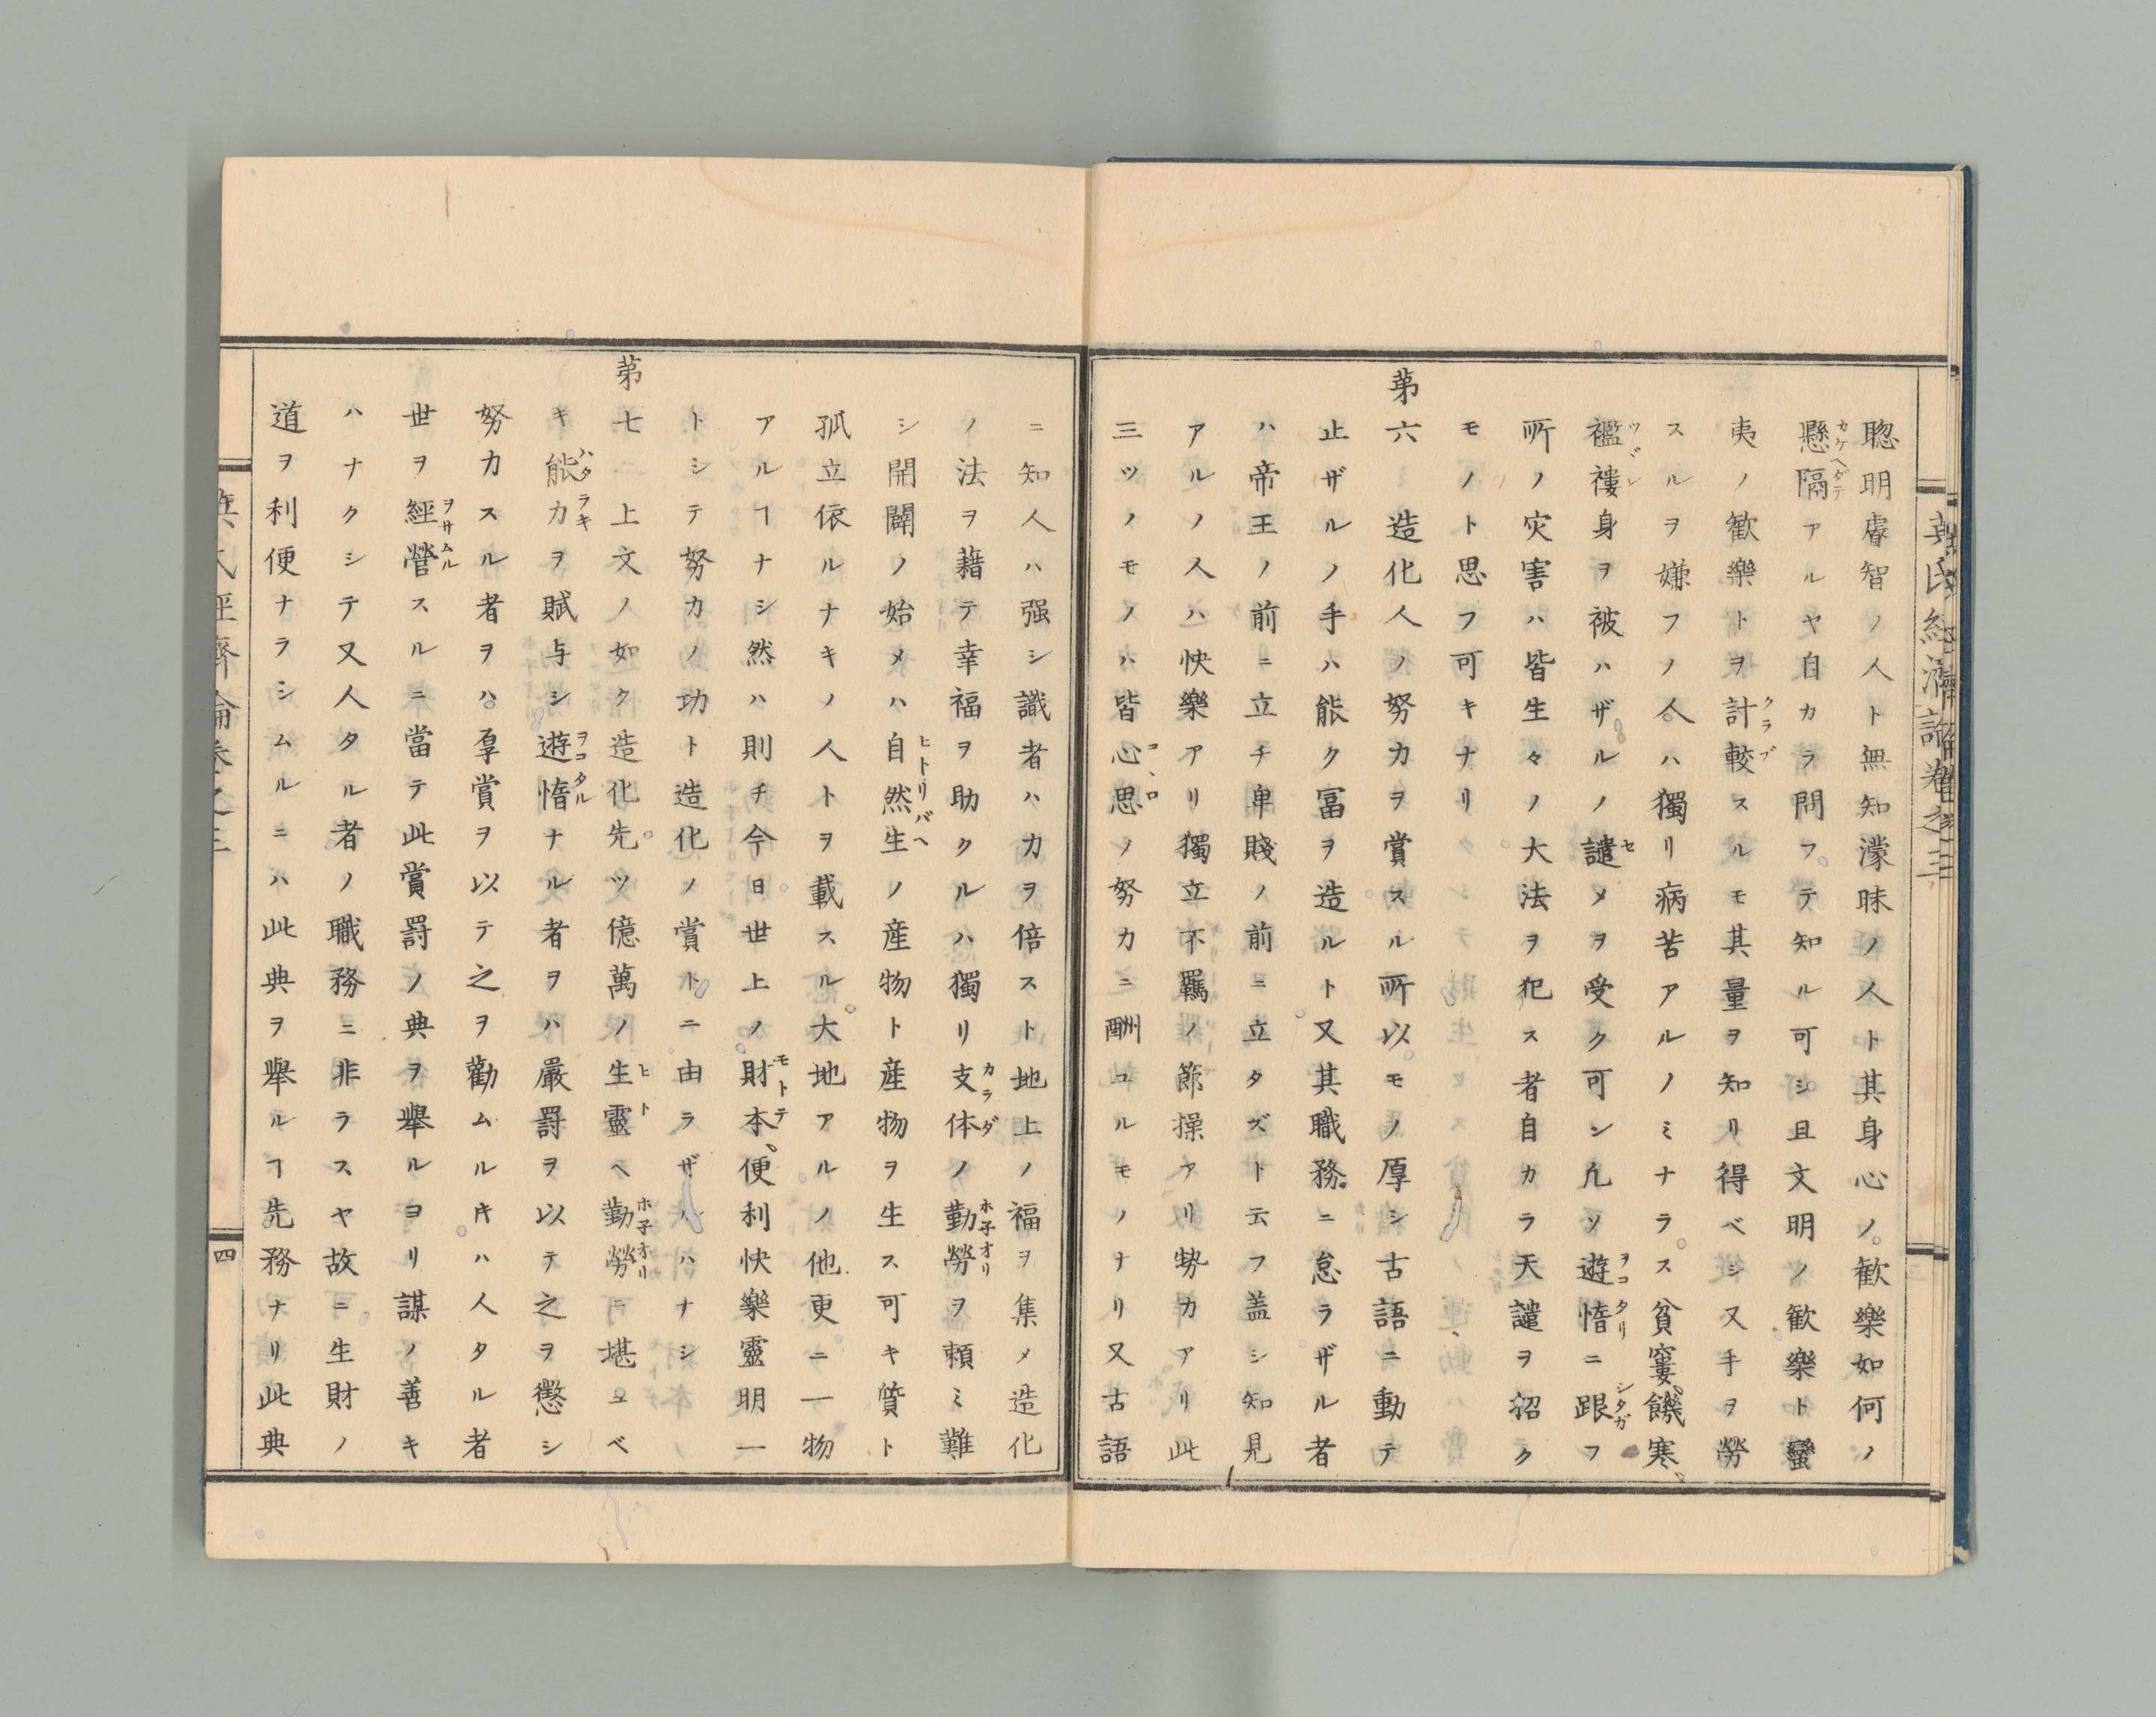 聰明睿智ノ人ト無知濛昧ノ人ト其身心ノ歓樂如何ノ
懸隔アルヤ自カラ問フテ知ル可シ且文明ノ歓樂ト蠻
カケヘダテ
夷ノ歓樂トヲ計較スルモ其量ヲ知リ得ベシ又手ヲ勞
クラブ
スルヲ嫌フノ人ハ獨リ病苦アルノミナラス貧窶饑寒
襤褸身ヲ被ハザルノ譴メヲ受ク可シ凢ソ遊惰ニ跟フ
ツヾレ
セ
ヲコタリ
シタガ
所ノ灾害ハ皆生々ノ大法ヲ犯ス者自カラ天譴ヲ招ク
モノト思フ可キナリ
第六 造化人ノ努力ヲ賞スル所以モノ厚シ古語ニ動テ
止ザルノ手ハ能ク冨ヲ造ルト又其職務ニ怠ラザル者
ハ帝王ノ前ニ立チ卑賤ノ前ニ立タズト云フ盖シ知見
アルノ人ハ快樂アリ獨立不羈ノ節操アリ勢力アリ此
三ツノモノハ皆心思ノ努力ニ酬ユルモノナリ又古語
コヽロ
ニ知人ハ强シ識者ハ力ヲ倍スト地上ノ福ヲ集メ造化
ノ法ヲ藉テ幸福ヲ助クルハ獨リ支体ノ勤勞ヲ頼ミ難
カラダ
ホ子オリ
シ開闢ノ始メハ自然生ノ産物ト産物ヲ生ス可キ質ト
ヒトリバヘ
孤立依ルナキノ人トヲ載スル大地アルノ他更ニ一物
アルヿナシ然ハ則チ今日世上ノ財本便利快樂靈明一
モトテ
トシテ努力ノ功ト造化ノ賞トニ由ラザルハナシ
第七 上文ノ如ク造化先ツ億萬ノ生靈ヘ勤勞ニ堪ユベ
ヒト
ホ子オリ
キ能力ヲ賦与シ遊惰ナル者ヲハ嚴罰ヲ以テ之ヲ懲シ
ハタラキ
ヲコタル
努力スル者ヲハ厚賞ヲ以テ之ヲ勸ムルキハ人タル者
世ヲ經營スルニ當テ此賞罰ノ典ヲ舉ルヨリ謀ノ善キ
ヲサムル
ハナクシテ又人タル者ノ職務ニ非ラスヤ故ニ生財ノ
道ヲ利便ナラシムルニハ此典ヲ舉ルヿ先務ナリ此典
四